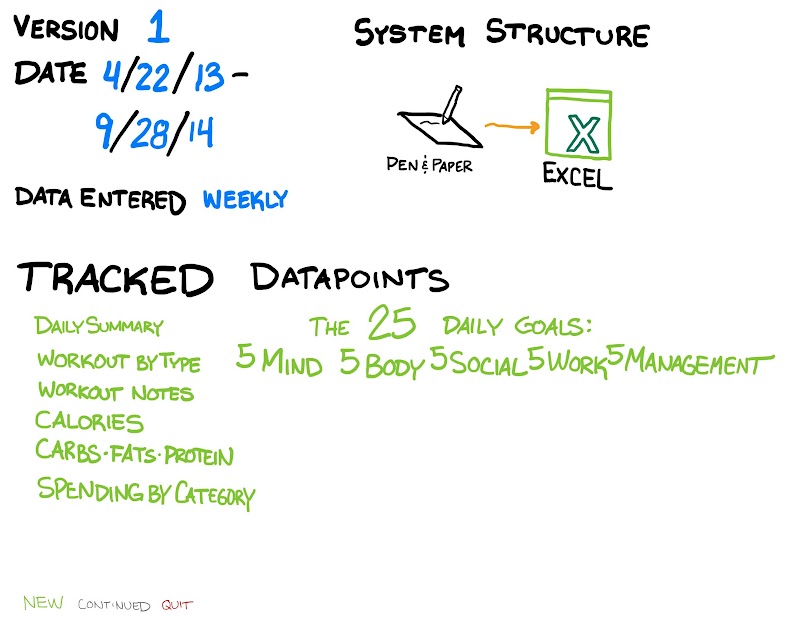 VERSION 1
DATE 4/22/13 -
9/28/14
DATA ENTERED WEEKLY
SYSTEM STRUCTURE
PEN & PAPER
X
EXCEL
TRACKED DATAPOINTS
DAILY SUMMARY
WORKOUT BY TYPE
WORKOUT NOTES
CALORIES
CARBS·FATS·PROTEIN
SPENDING BY CATEGORY
THE 25 DAILY GOALS:
5 MIND 5 BODY 5 SOCIAL 5 WORK 5 MANAGEMENT
NEW CONTINUED QUIT